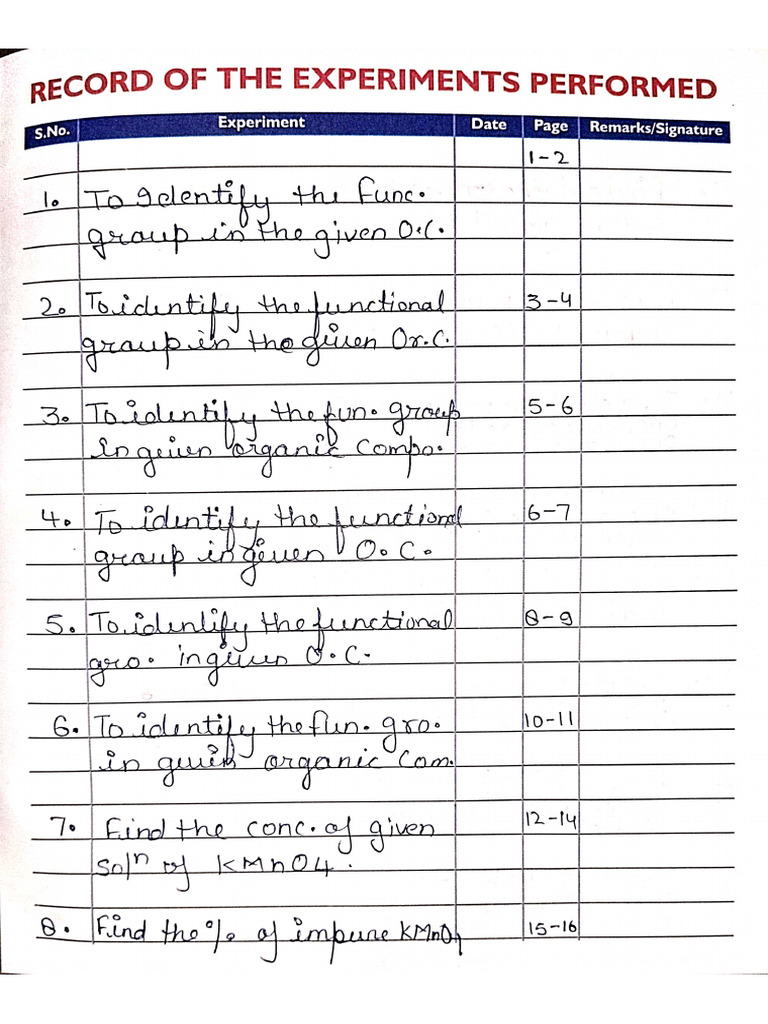 RECORD OF THE EXPERIMENTS PERFORMED
S.No. Experiment Date Page Remarks/Signature
1-2
1. To Identify the Func.
group in the given O.C.
2. To identify the functional 3-4
group in the given Or.C.
3. To identify the fun. group 5-6
in given organic Compo.
4. To identify the functional 6-7
group in given O.C.
5. To identify the functional 8-9
gro. in given O.C.
6. To identify the fun. gro. 10-11
in given organic Com.
7. Find the conc. of given 12-14
Soln of KMnO4.
8. Find the % of impure KMnO4 15-16